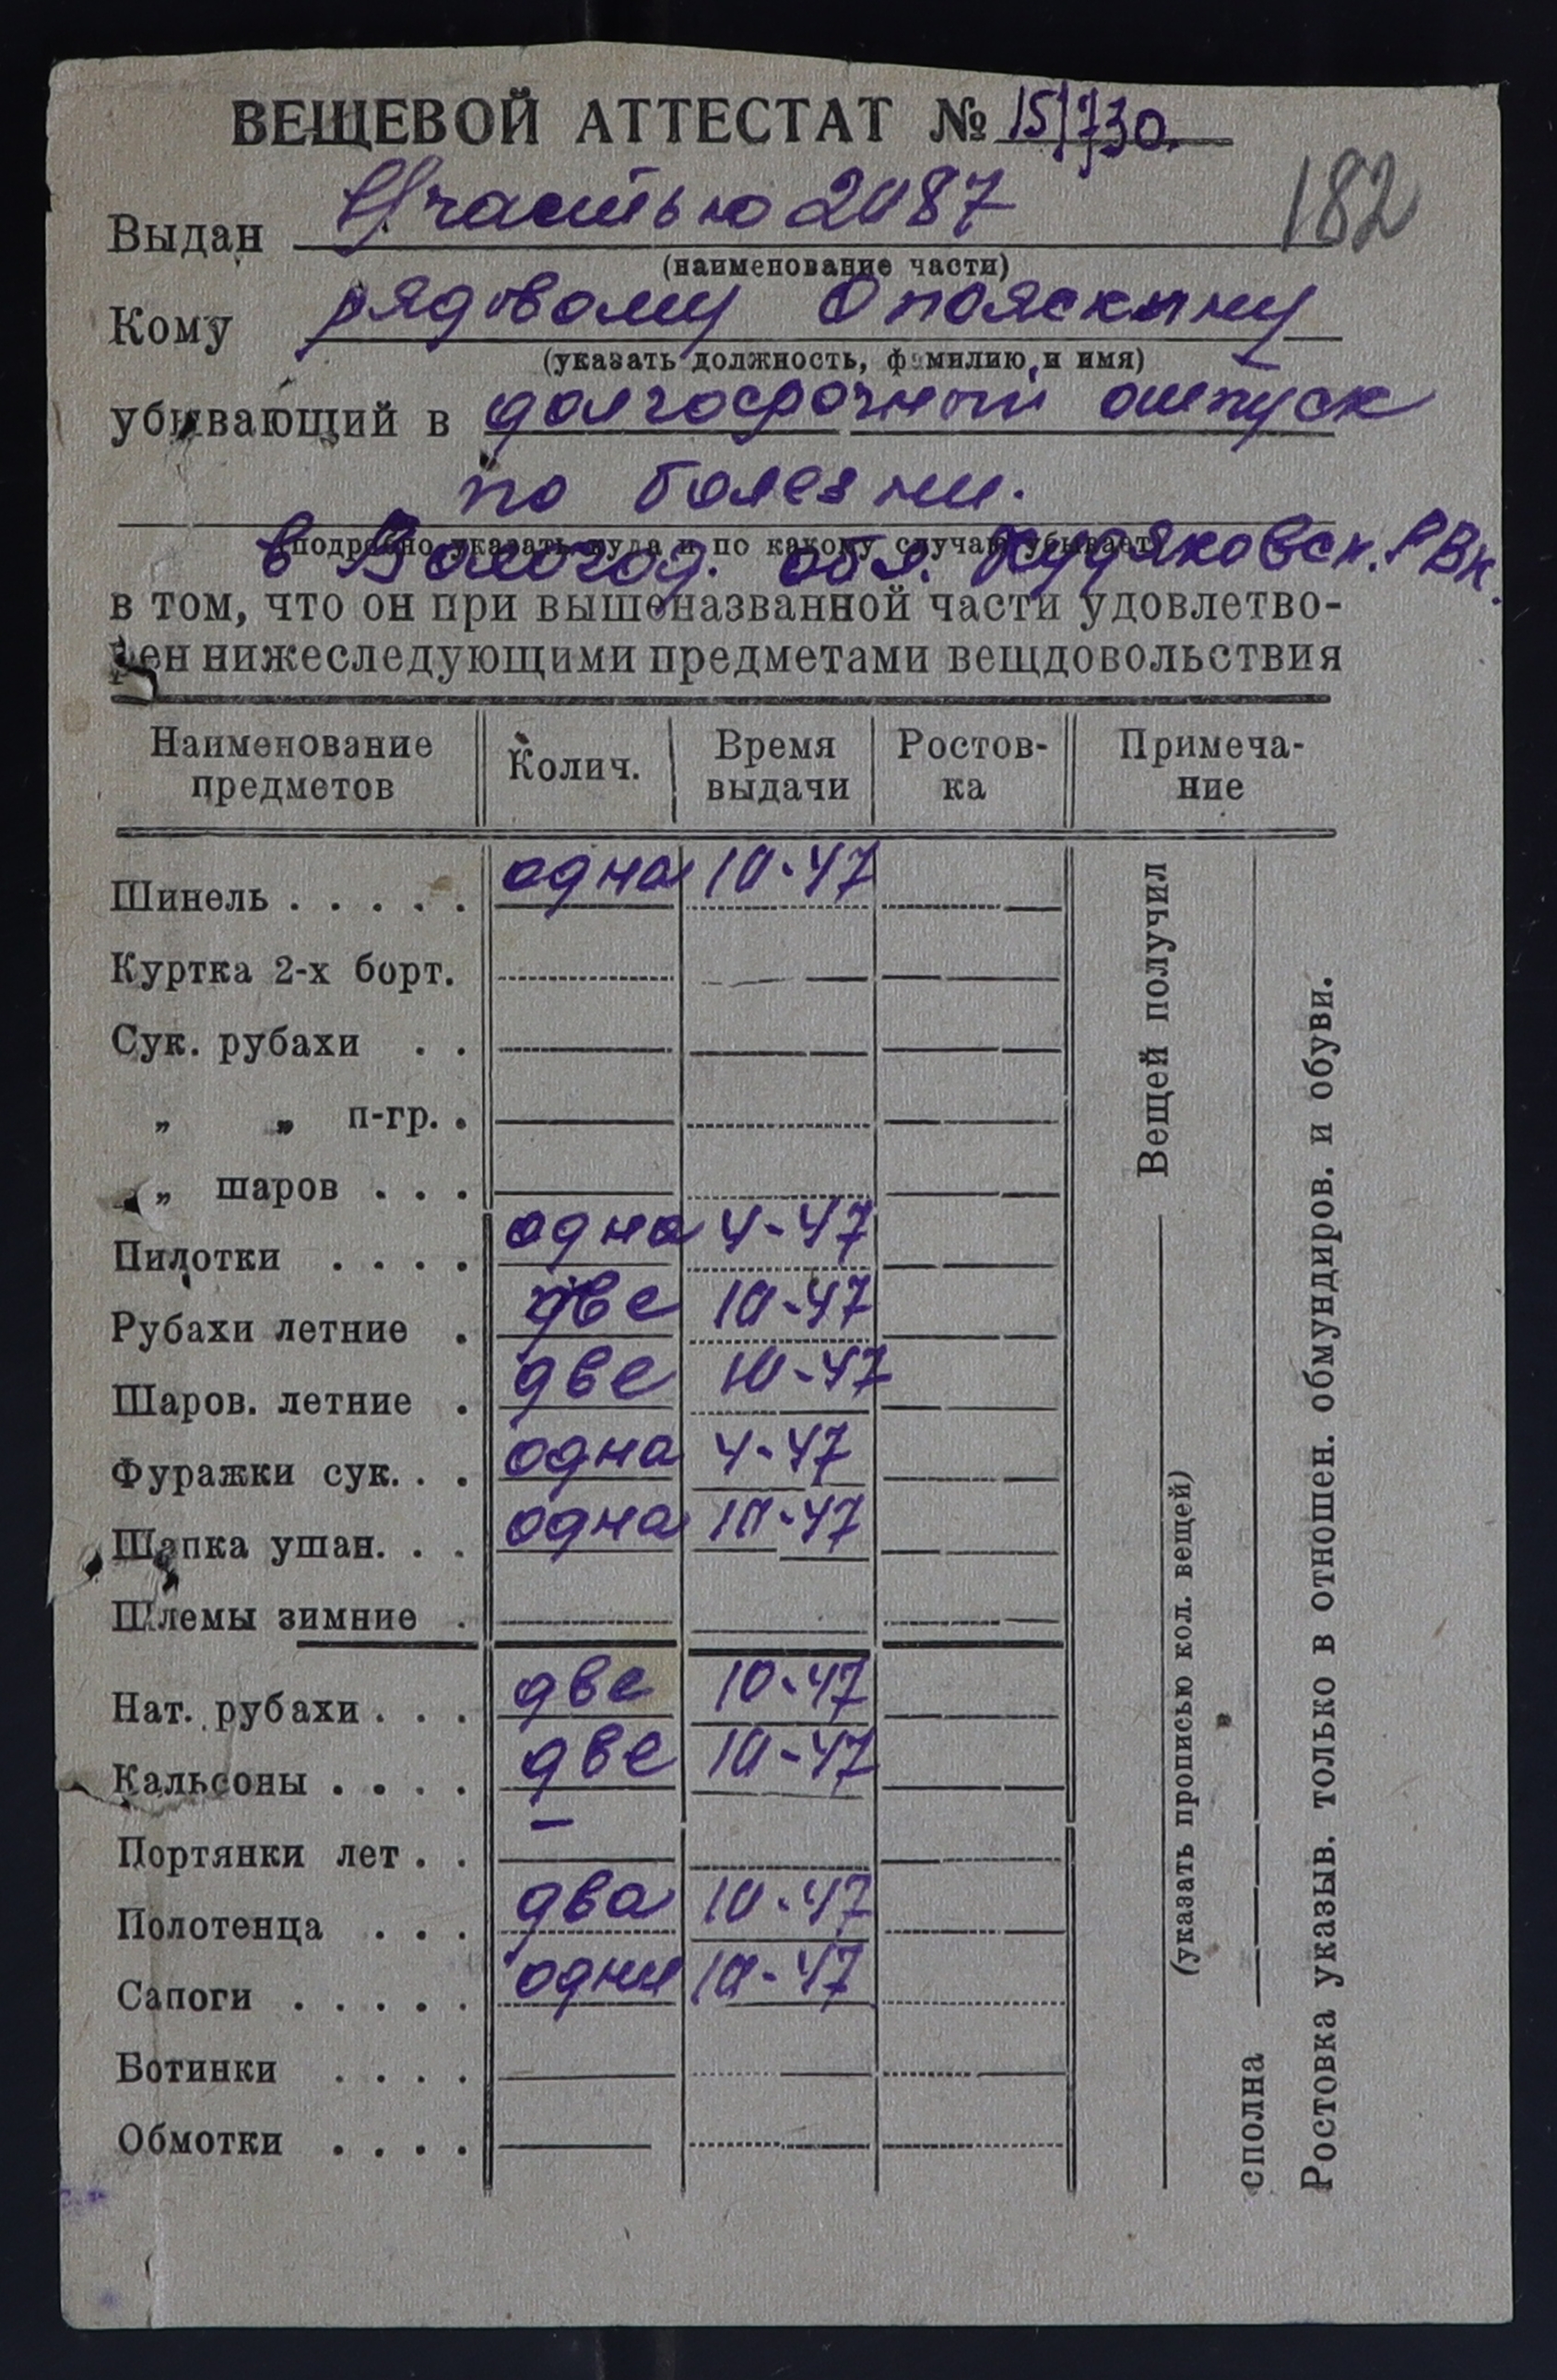 ВЕЩЕВОЙ АТТЕСТАТ № 15/730.
182
Выдан частью 2087
(наименование части)
Кому рядовому Опояскину
(указать должность, фамилию и имя)
убывающий в долгосрочный отпуск
по болезни.
(подробно указать куда и по какому случаю убывает)
в Вологод. обл. РВК.
в том, что он при вышеназванной части удовлетво-
рен нижеследующими предметами вещдовольствия
Наименование предметов Колич. Время выдачи Ростов-ка Примеча-ние
Шинель . . . . . одна 10-47
Куртка 2-х борт.
Сук. рубахи . .
„ „ п-гр. .
„ шаров . . .
Пилотки . . . . одна 4-47
Рубахи летние . две 10-47
Шаров. летние . две 10-47
Фуражки сук. . . одна 4-47
Шапка ушан. . . одна 10-47
Шлемы зимние .
Нат. рубахи . . . две 10-47
Кальсоны . . . . две 10-47
Портянки лет . . –
Полотенца . . . два 10-47
Сапоги . . . . . одни 10-47
Ботинки . . . .
Обмотки . . . .
Вещей получил
(указать прописью кол. вещей)
сполна
Ростовка указыв. только в отношен. обмундиров. и обуви.